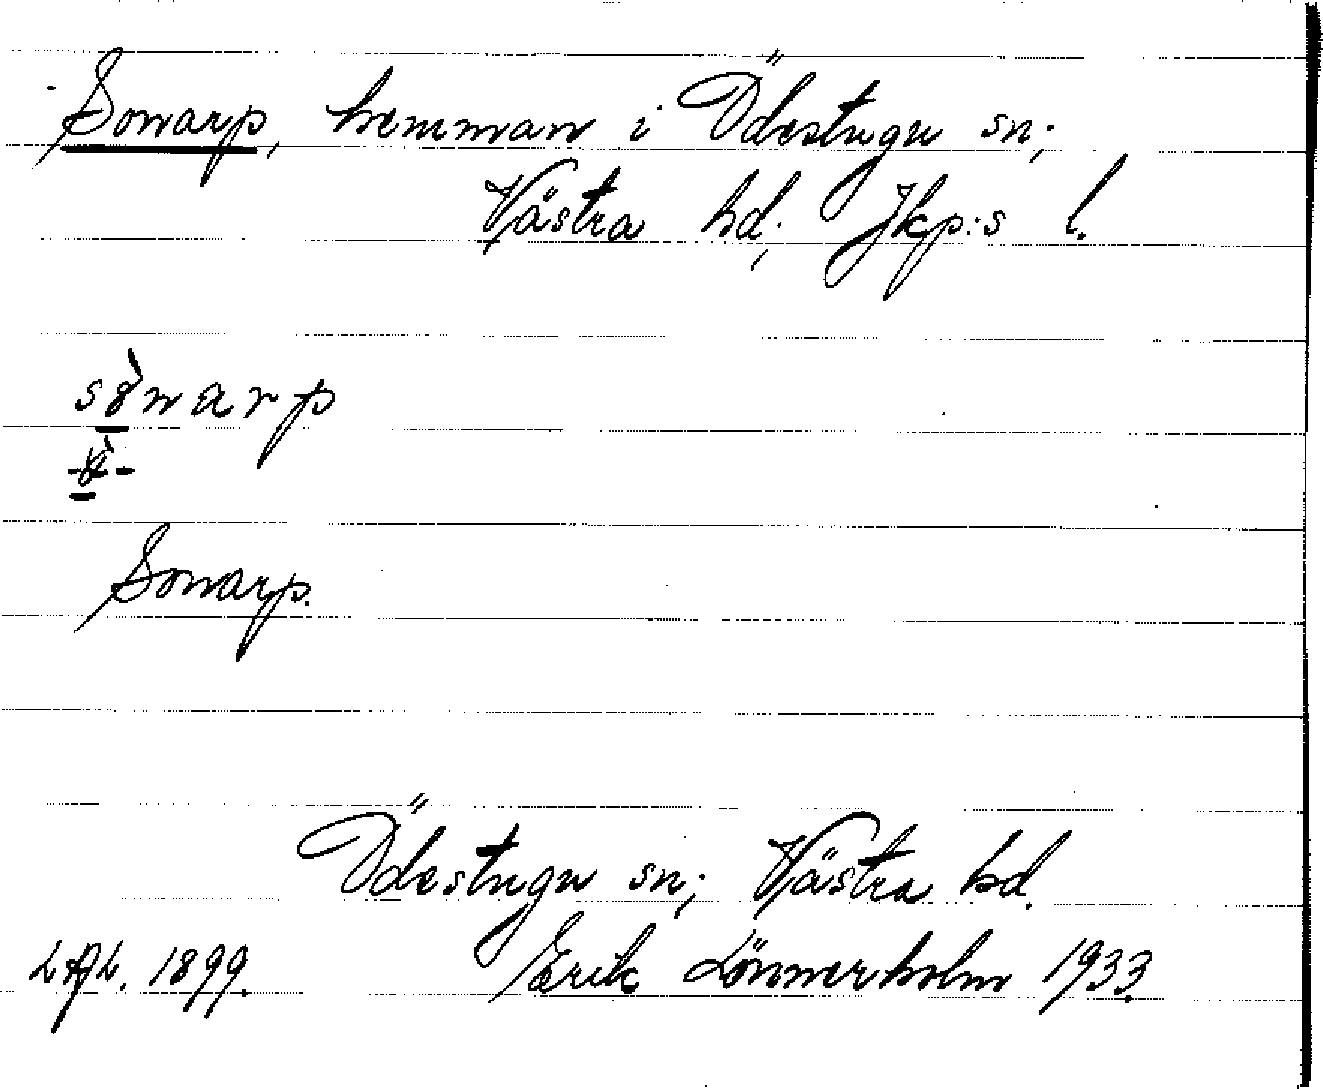 Sonarp, hemman i Ödestugu sn;
Västra hd; Jkp:s l.
sònarp
Sonarp.
Ödestugu sn; Västra hd.
1899. Erik Lönnerholm 1933.